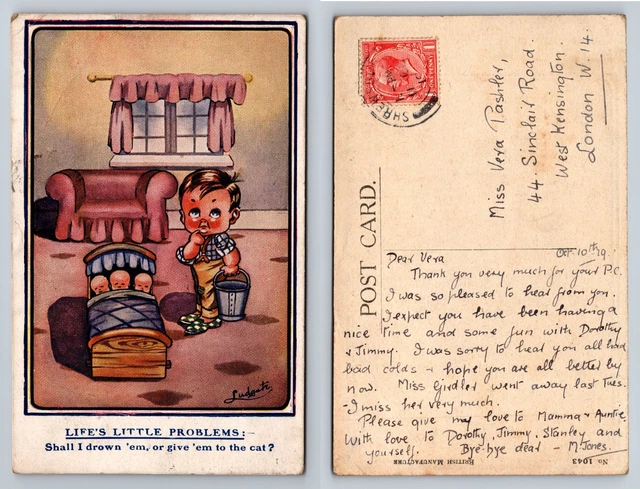 Ludgate
LIFE'S LITTLE PROBLEMS:—
Shall I drown 'em, or give 'em to the cat?
POST CARD.
Miss Vera Pashler,
44. Sinclair Road.
West Kensington.
London W. 14.
Oct. 10th 19.
Dear Vera
Thank you very much for your P.C.
I was so pleased to hear from you.
I expect you have been having a
nice time and some fun with Dorothy
& Jimmy. I was sorry to hear you all had
bad colds & hope you are all better by
now. Miss Girdler went away last Tues.
- I miss her very much.
Please give my love to Mamma & Auntie.
With love to Dorothy, Jimmy, Stanley and
yourself. Bye-bye dear - M. Jones.
No 1043 BRITISH MANUFACTURE